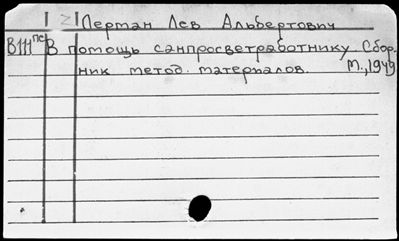 Перман Лев Альбертович
В111пс В помощь санпросветработнику Сбор-
ник метод. материалов. М., 1949